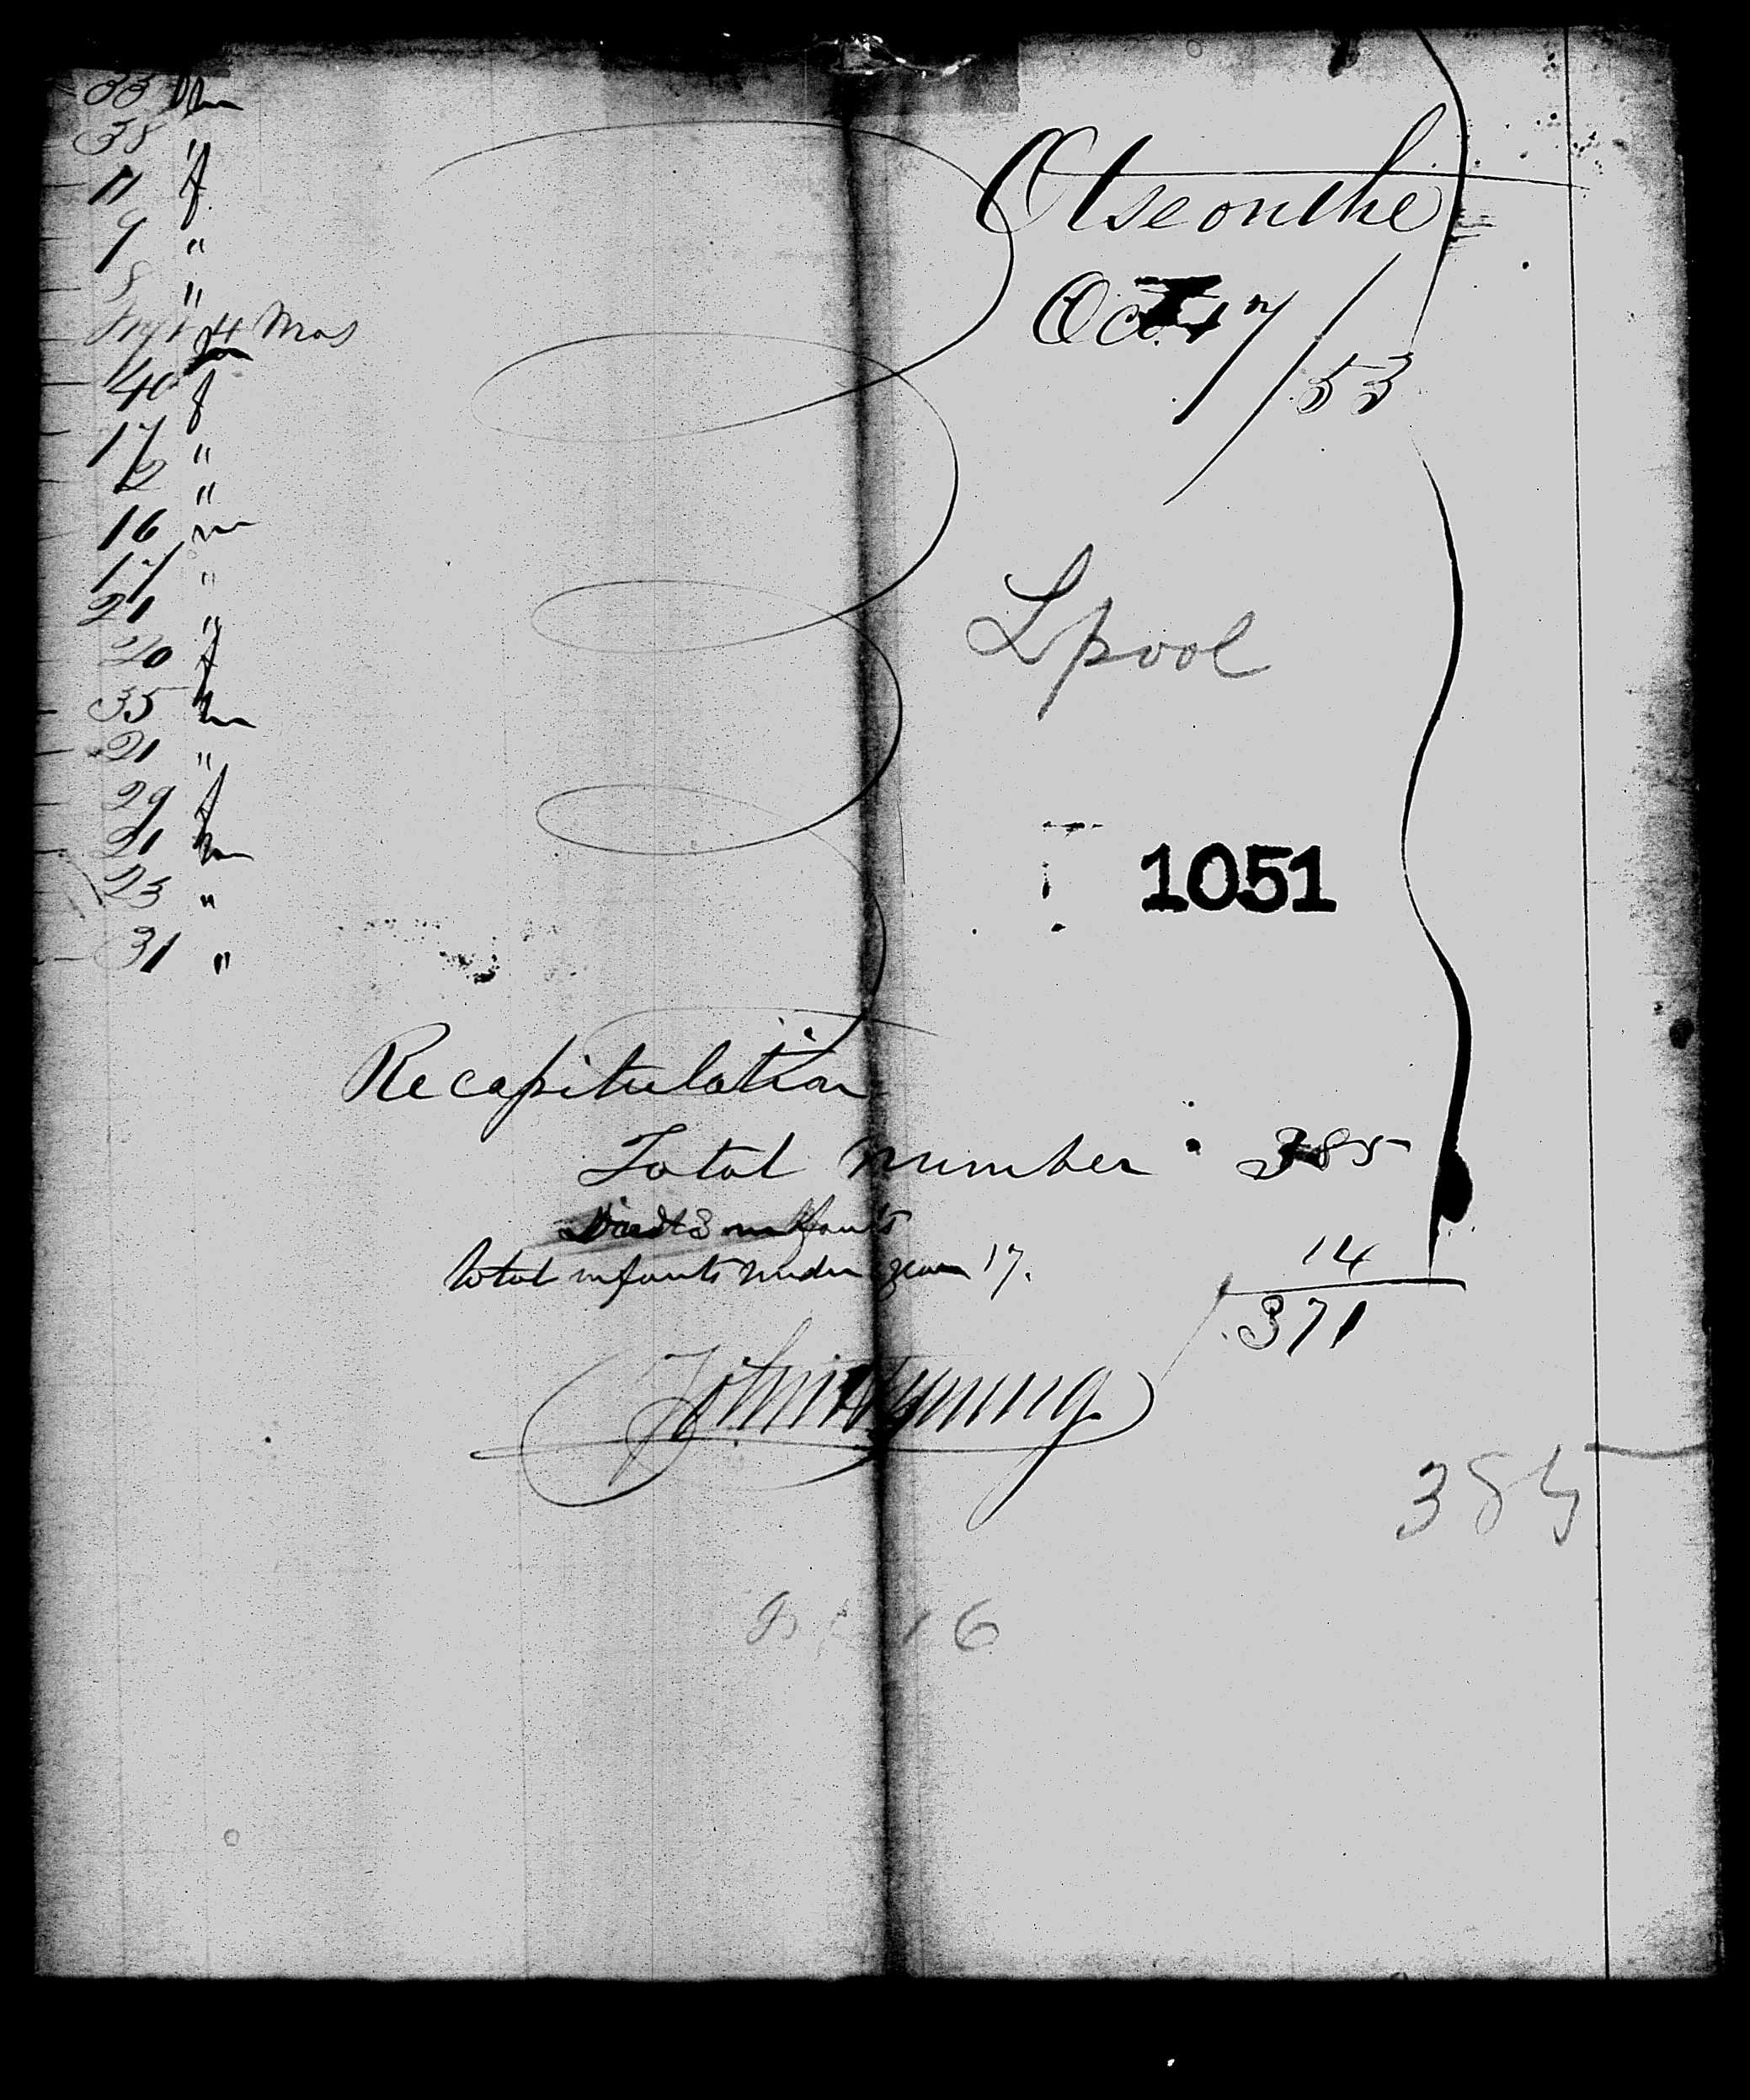 33 m
38 "
11 f
9 "
8 "
Inft 4 Mos
40 f
17 "
2 "
16 m
17 "
21 "
20 f
35 m
21 "
29 f
21 m
23 "
31 "
Otseonthe
Oct 17/53
Lpool
1051
Recapitulation
Total number 385
infants
Total infants under year 17. 14
371
John
385
6